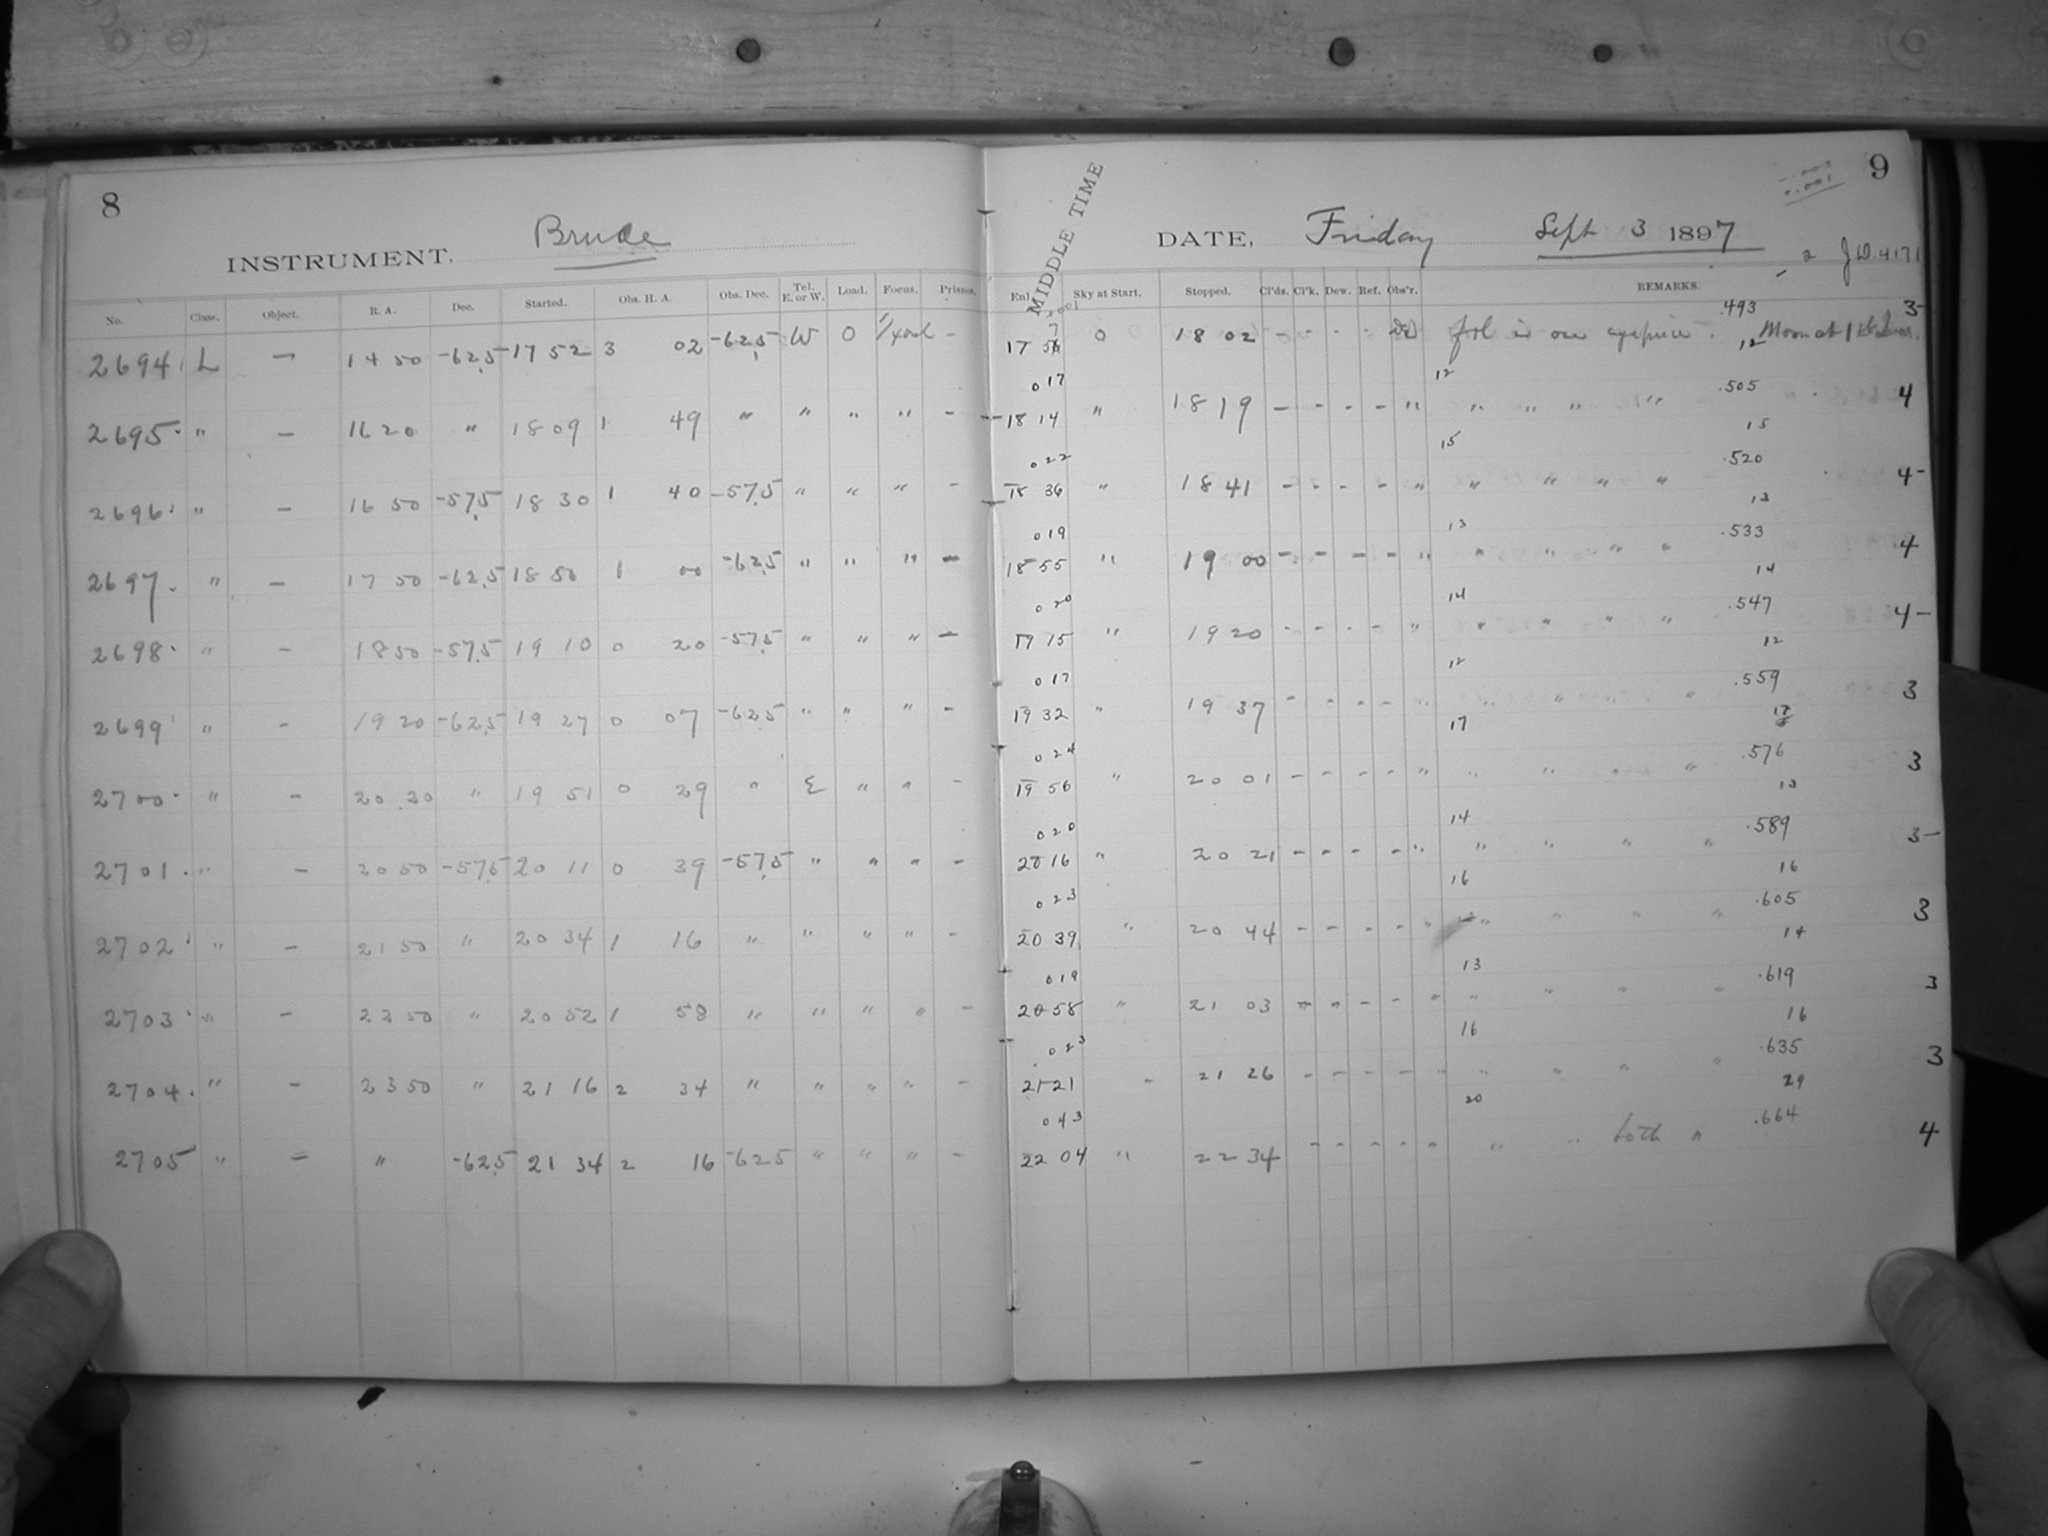 8
INSTRUMENT. Bruce
No. Class. Object. R. A. Dec. Started. Obs. H. A. Obs. Dec. Tel. E. or W. Load. Focus. Prisms.
2694 L — 14 50 -62.5 17 52 3 02 -62.5 W 0 -
2695 " — 16 20 " 18 09 1 49 " " " " -
2696 " — 16 50 -57.5 18 30 1 40 -57.5 " " " -
2697 " — 17 50 -62.5 18 50 1 00 -62.5 " " " -
2698 " - 18 50 -57.5 19 10 0 20 -57.5 " " " -
2699 " - 19 20 -62.5 19 27 0 07 -62.5 " " " -
2700 " - 20 20 " 19 51 0 29 " E " " -
2701 " - 20 50 -57.5 20 11 0 39 -57.5 " " " -
2702 " - 21 50 " 20 34 1 16 " " " " -
2703 " - 22 50 " 20 52 1 58 " " " " -
2704 " - 23 50 " 21 16 2 34 " " " " -
2705 " - " -62.5 21 34 2 16 -62.5 " " " -
9
-.003
+.001
MIDDLE TIME
DATE, Friday Sept 3 1897
- 2 J.D. 4171
Enl. Sky at Start. Stopped. Cl'ds. Cl'k. Dew. Ref. Obs'r. REMARKS.
.493 3-
17 57 0 18 02 - - - - fol in one eyepiece. Moon at 1st Quar.
12
017 12 .505
18 14 " 18 19 - - - - " " " " " 4
15
022 15 .520
18 36 " 18 41 - - - - " " " " " 4-
13
019 13 .533
18 55 " 19 00 - - - - " " " " " 4
14
020 14 .547
19 15 " 19 20 - - - - " " " " " 4-
12
017 12 .559
19 32 " 19 37 - - - - " " " " 3
17 17
024 .576
19 56 " 20 01 - - - - " " " " " 3
13
020 14 .589
20 16 " 20 21 - - - - " " " " " 3-
16
023 16 .605
20 39 " 20 44 - - - - " " " " " 3
14
019 13 .619
20 58 " 21 03 - - - - " " " " " 3
16
023 16 .635
21 21 " 21 26 - - - - " " " " " 3
29
043 20 .664
22 04 " 22 34 - - - - " " " both " 4